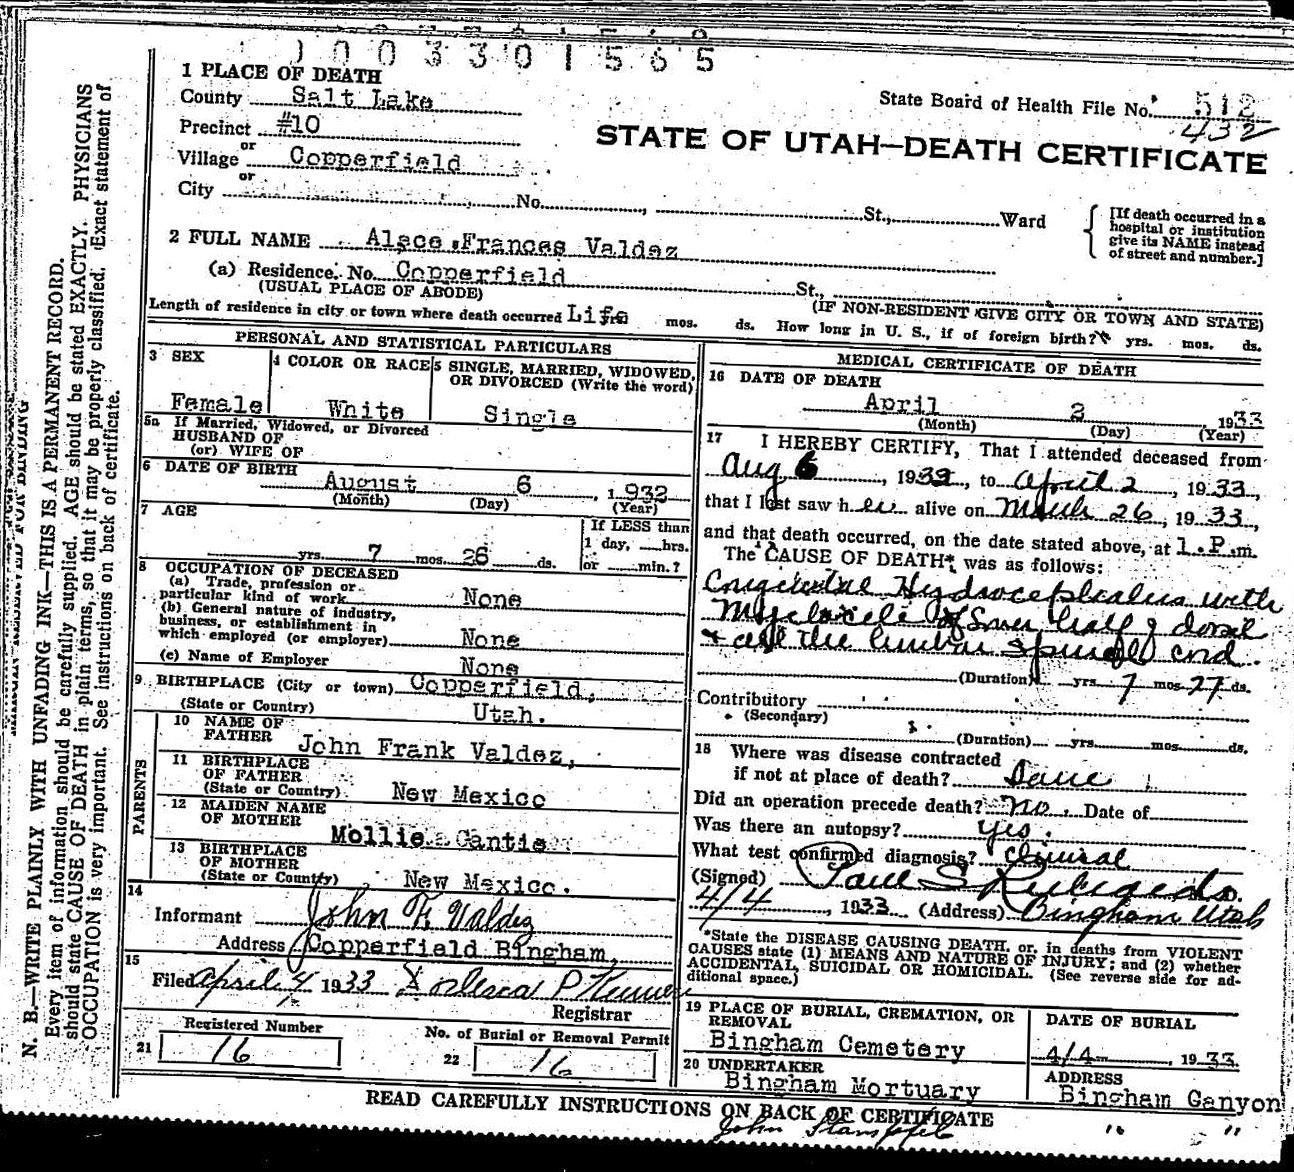 1003301565
1 PLACE OF DEATH
County Salt Lake
State Board of Health File No. 512
432
Precinct #10
STATE OF UTAH—DEATH CERTIFICATE
or
Village Copperfield
or
City No. , St., Ward
[If death occurred in a hospital or institution give its NAME instead of street and number.]
2 FULL NAME Alace Frances Valdez
(a) Residence. No. Copperfield St.,
(USUAL PLACE OF ABODE) (IF NON-RESIDENT GIVE CITY OR TOWN AND STATE)
Length of residence in city or town where death occurred Life mos. ds. How long in U. S., if of foreign birth? yrs. mos. ds.
PERSONAL AND STATISTICAL PARTICULARS
3 SEX
Female
4 COLOR OR RACE
White
5 SINGLE, MARRIED, WIDOWED, OR DIVORCED (Write the word)
Single
5a If Married, Widowed, or Divorced
HUSBAND OF
(or) WIFE OF
6 DATE OF BIRTH
August 6, 1932
(Month) (Day) (Year)
7 AGE
yrs. 7 mos. 26 ds.
If LESS than
1 day, hrs.
or min.?
8 OCCUPATION OF DECEASED
(a) Trade, profession or
particular kind of work None
(b) General nature of industry,
business, or establishment in
which employed (or employer) None
(c) Name of Employer None
9 BIRTHPLACE (City or town) Copperfield,
(State or Country) Utah.
PARENTS
10 NAME OF
FATHER John Frank Valdez,
11 BIRTHPLACE
OF FATHER
(State or Country) New Mexico
12 MAIDEN NAME
OF MOTHER
Mollie Cantie
13 BIRTHPLACE
OF MOTHER
(State or Country) New Mexico.
14
Informant John F. Valdez
Address Copperfield Bingham,
15
Filed April 4 1933
Registrar
Registered Number
21 16
No. of Burial or Removal Permit
22 16
MEDICAL CERTIFICATE OF DEATH
16 DATE OF DEATH
April 2 1933
(Month) (Day) (Year)
17 I HEREBY CERTIFY, That I attended deceased from
Aug 6, 1932, to April 2, 1933,
that I last saw her alive on March 26, 1933,
and that death occurred, on the date stated above, at 1.P.m.
The CAUSE OF DEATH* was as follows:
Congenital Hydrocephalus with
Myelocele of lower half of dorsal
& all the lumbar spinal cord.
(Duration) yrs. 7 mos. 27 ds.
Contributory
(Secondary)
(Duration) yrs. mos. ds.
18 Where was disease contracted
if not at place of death? Same
Did an operation precede death? no. Date of
Was there an autopsy? Yes.
What test confirmed diagnosis? Clinical
(Signed) Paul S.
4/4, 1933 (Address) Bingham Utah
*State the DISEASE CAUSING DEATH, or, in deaths from VIOLENT
CAUSES state (1) MEANS AND NATURE OF INJURY; and (2) whether
ACCIDENTAL, SUICIDAL OR HOMICIDAL. (See reverse side for ad-
ditional space.)
19 PLACE OF BURIAL, CREMATION, OR
REMOVAL
Bingham Cemetery
DATE OF BURIAL
4/4, 1933
20 UNDERTAKER
Bingham Mortuary
ADDRESS
Bingham Canyon
READ CAREFULLY INSTRUCTIONS ON BACK OF CERTIFICATE
John " "
N. B.—WRITE PLAINLY WITH UNFADING INK—THIS IS A PERMANENT RECORD.
Every item of information should be carefully supplied. AGE should be stated EXACTLY. PHYSICIANS
should state CAUSE OF DEATH in plain terms, so that it may be properly classified. Exact statement of
OCCUPATION is very important. See instructions on back of certificate.